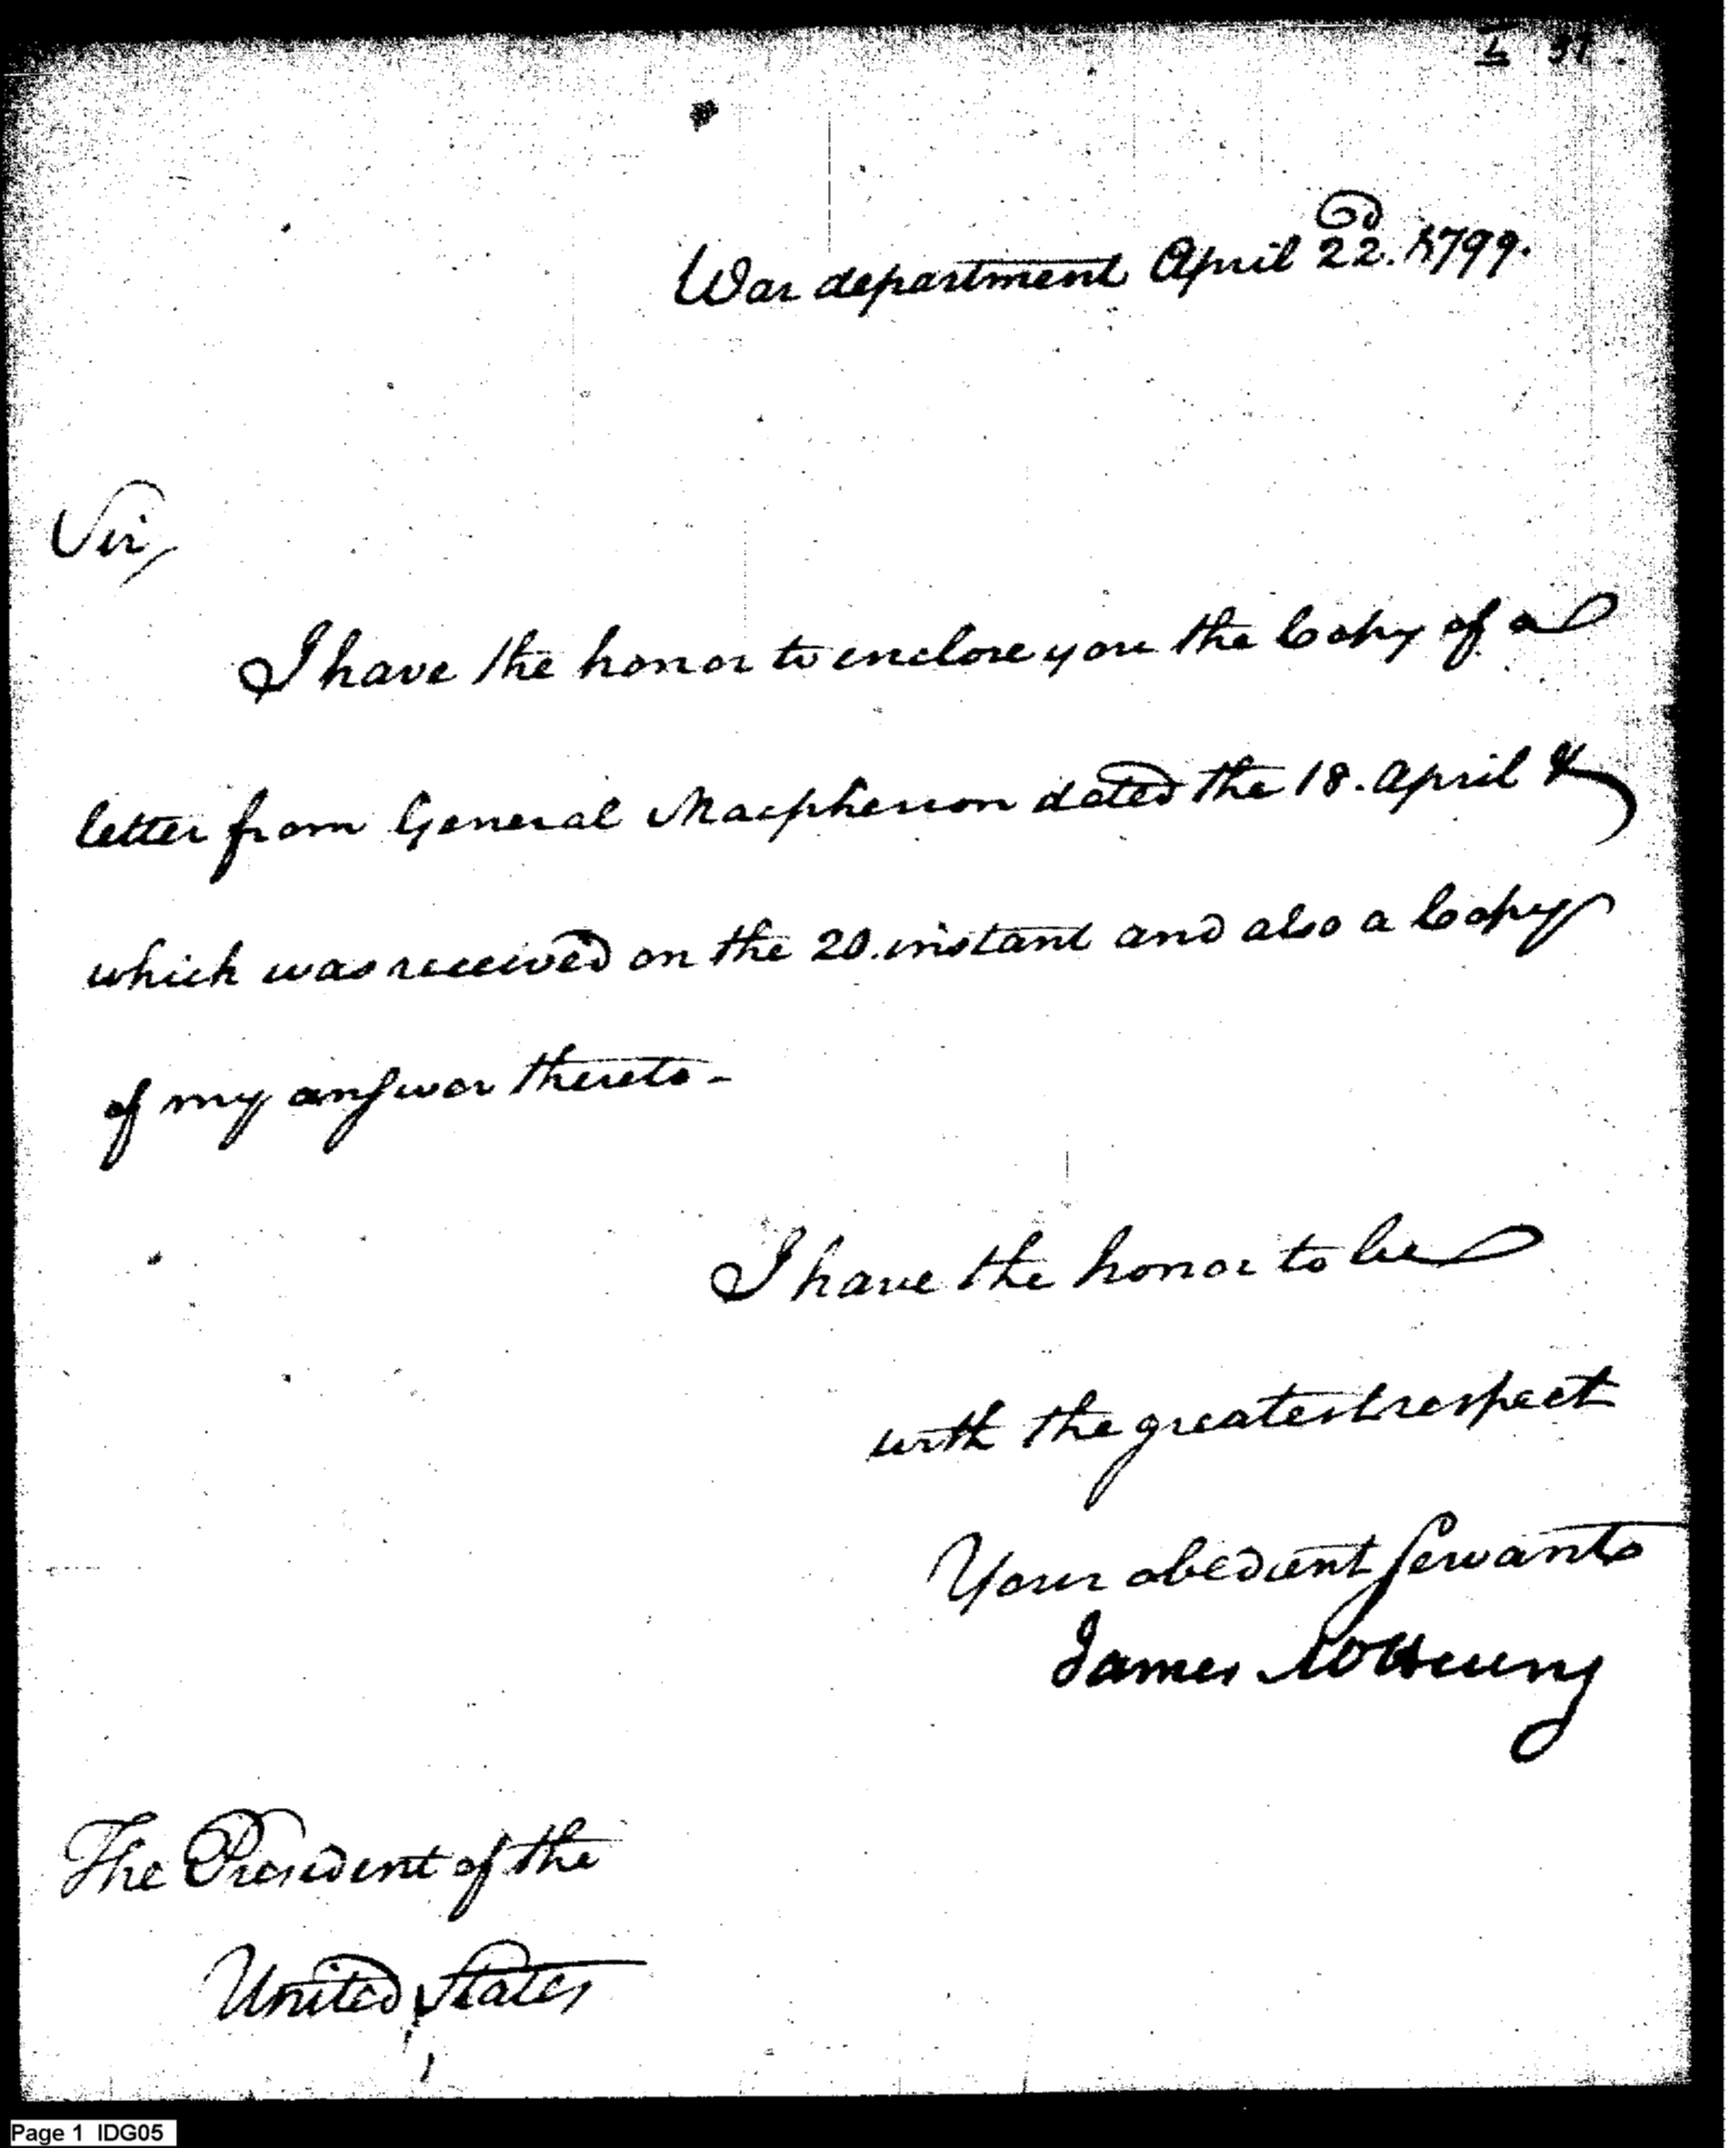 War department April 22d. 1799.
Sir,
I have the honor to enclose you the Copy of a
letter from General Macpherson dated the 18. April &
which was received on the 20. instant and also a Copy
of my anſwer thereto -
I have the honor to be
with the greatest respect
Your obedient ſervant
James McHenry
The President of the
United States
Page 1 IDG05